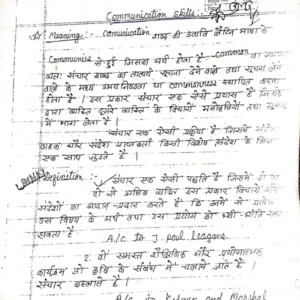 Communication Skills
Meaning :- Communication शब्द की उत्पत्ति लैटिन भाषा के
Communis से हुई जिसका अर्थ होता है - Common या
अतः संचार शब्द का तात्पर्य सूचना देने वाले तथा सूचना लेने
वाले के मध्य समानता या commonness स्थापित करना
होता है। इस प्रकार संचार एक ऐसा प्रयास है जिसके
द्वारा व्यक्ति दूसरे व्यक्ति के विचारों मनोवृत्तियों तथा
में भाग लेता है।
संचार एक ऐसी प्रक्रिया है जिसमें संदेश
वाहक और संदेश प्राप्तकर्ता किसी विशेष संदेश के लिए
एक साथ जुड़ते हैं।
Definition :- संचार एक ऐसी पद्धति है जिसमें दो या
दो से अधिक व्यक्ति इस प्रकार विचारों और
संदेशों का आदान-प्रदान करते हैं कि उनमें से प्रत्येक
उस विषय के अर्थ तथा उस प्रयोग को भली-भाँति समझ
सकता है
A/c to J. Paul Leagans
2. वे समस्त शैक्षणिक और प्रयोगात्मक
कार्यक्रम जो कृषि के संबंध में चलाये जाते हैं
संचार कहलाते हैं।
A/c to Kelsey and Marshal